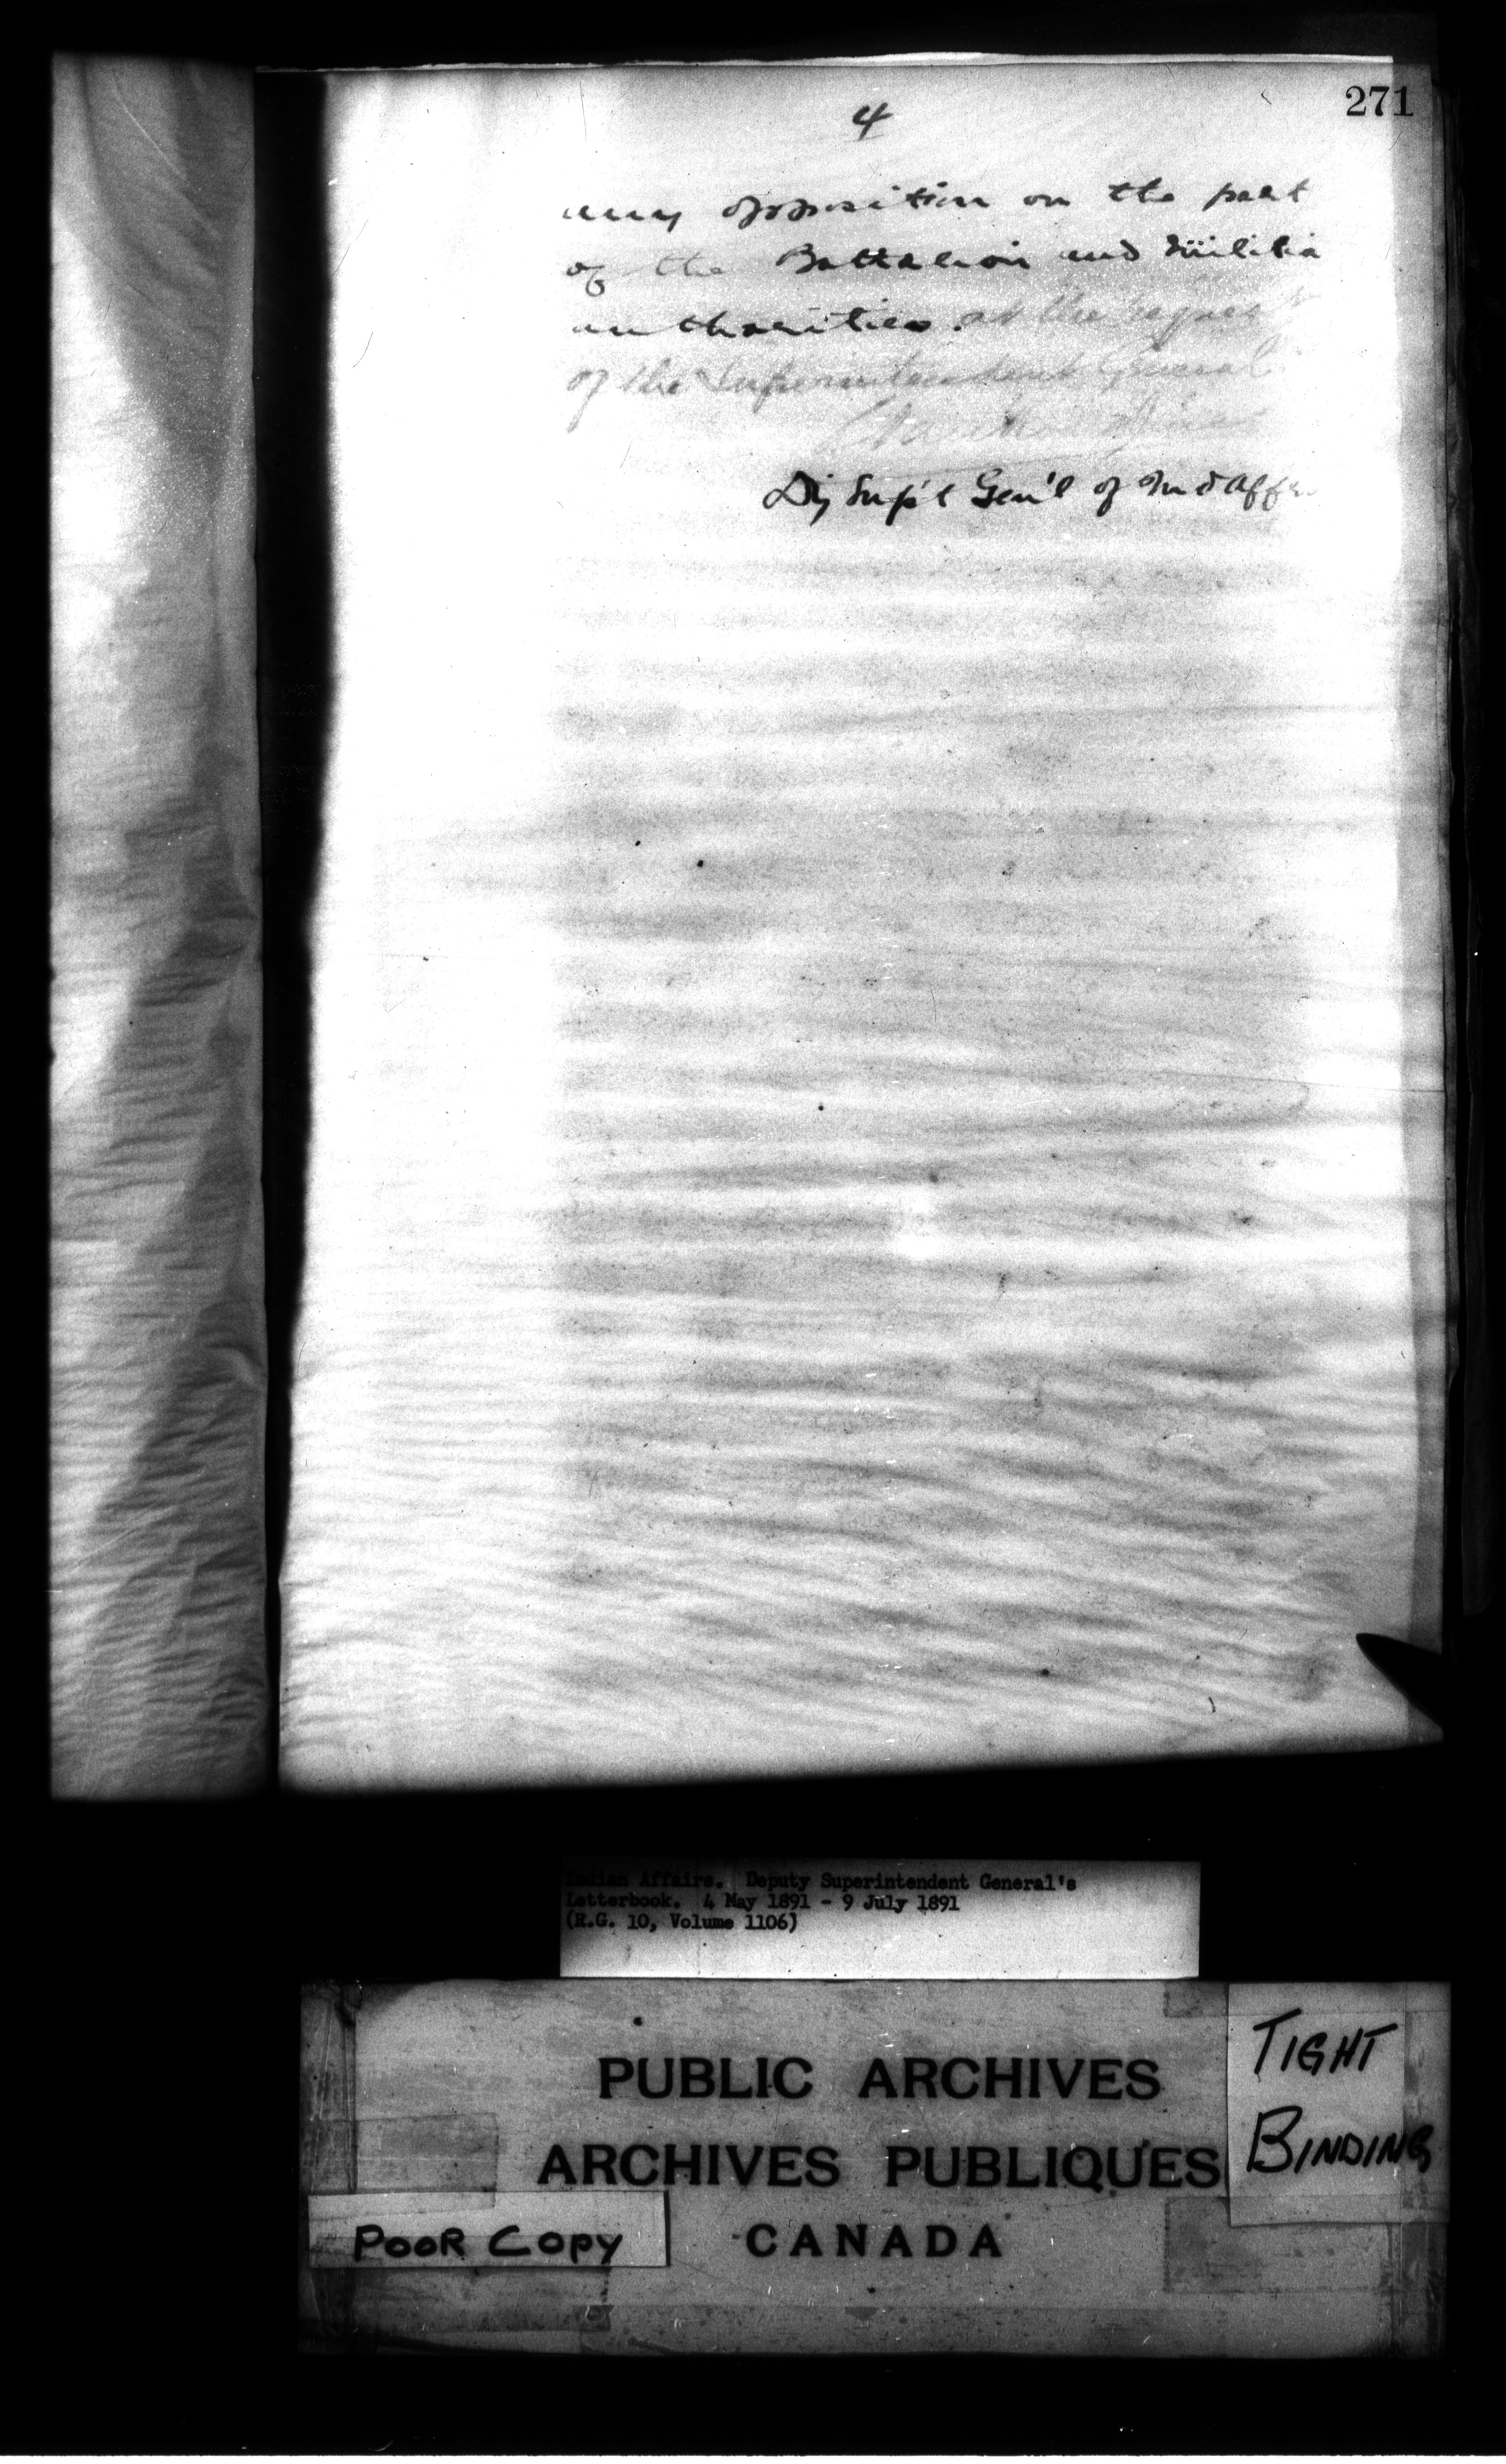 271
4
any opposition on the part
of the Battalion and Militia
authorities. at the request
of the Superintendent General
Dy Sup't Gen'l of Ind Affrs
Indian Affairs. Deputy Superintendent General's
Letterbook. 4 May 1891 - 9 July 1891
(R.G. 10, Volume 1106)
PUBLIC ARCHIVES
ARCHIVES PUBLIQUES
CANADA
TIGHT
BINDING
POOR COPY